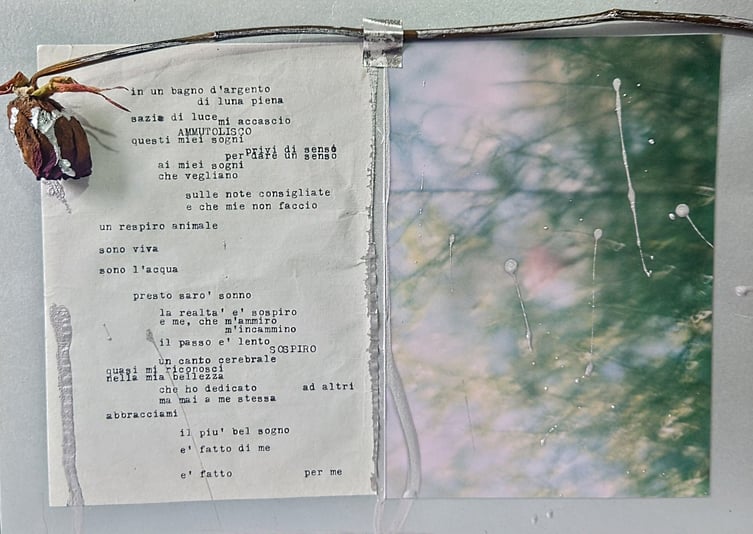 in un bagno d'argento
di luna piena
sazia di luce mi accascio
AMMUTOLISCO
questi miei sogni
privi di senso
per dare un senso
ai miei sogni
che vegliano
sulle note consigliate
e che mie non faccio
un respiro animale
sono viva
sono l'acqua
presto saro' sonno
la realta' e' sospiro
e me, che m'ammiro
m'incammino
il passo e' lento
SOSPIRO
un canto cerebrale
quasi mi riconosci
nella mia bellezza
che ho dedicato ad altri
ma mai a me stessa
abbracciami
il piu' bel sogno
e' fatto di me
e' fatto per me